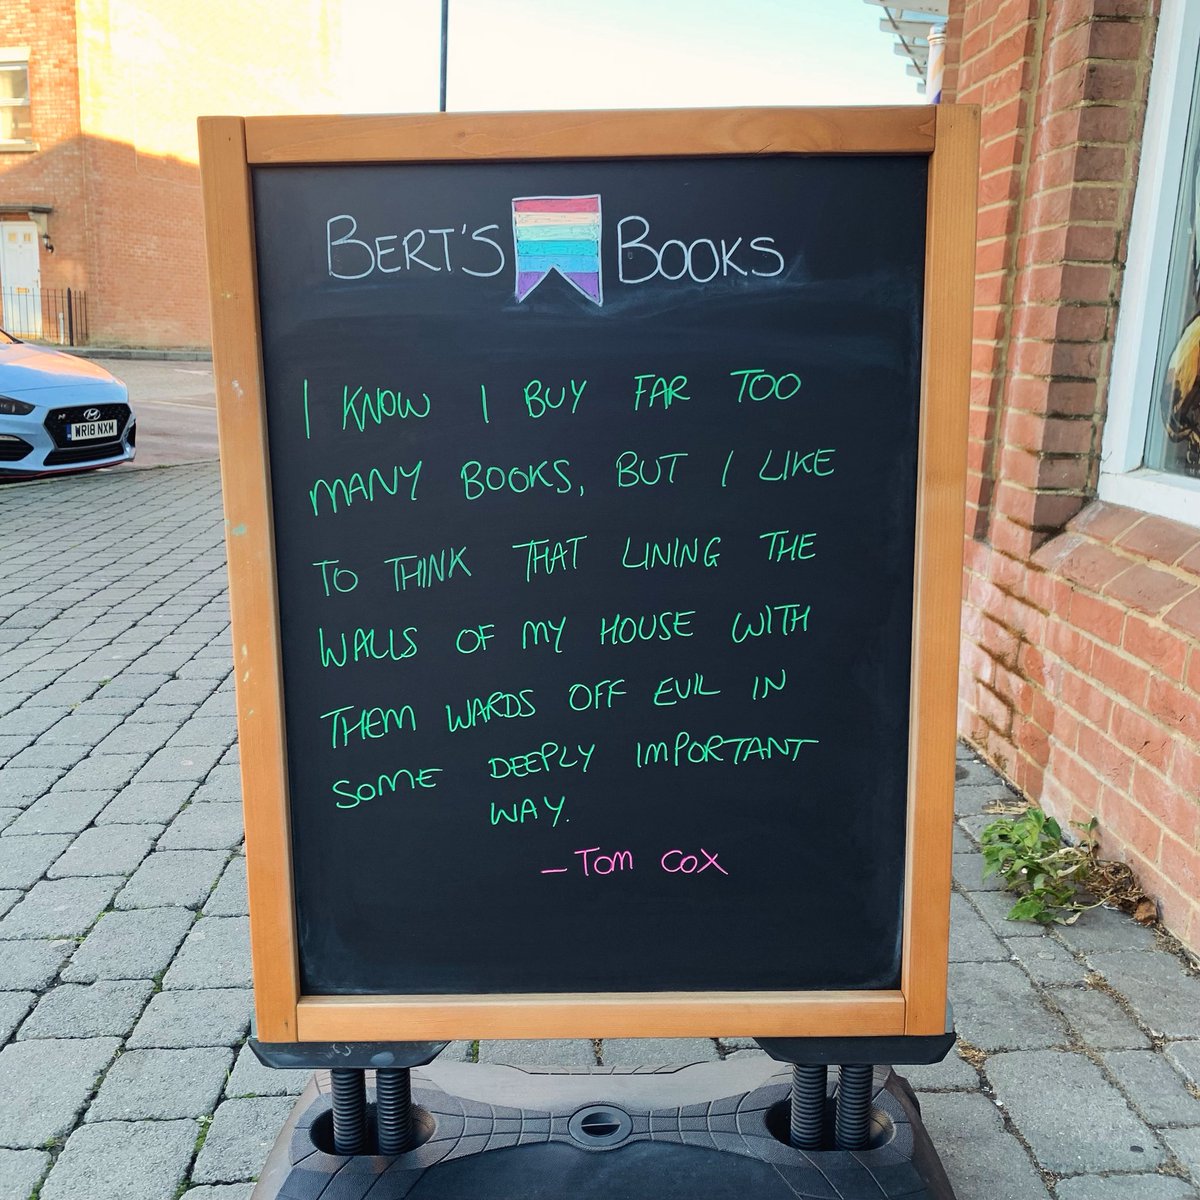 BERT'S BOOKS
I KNOW I BUY FAR TOO
MANY BOOKS, BUT I LIKE
TO THINK THAT LINING THE
WALLS OF MY HOUSE WITH
THEM WARDS OFF EVIL IN
SOME DEEPLY IMPORTANT
WAY.
- TOM COX
WR18 NXM